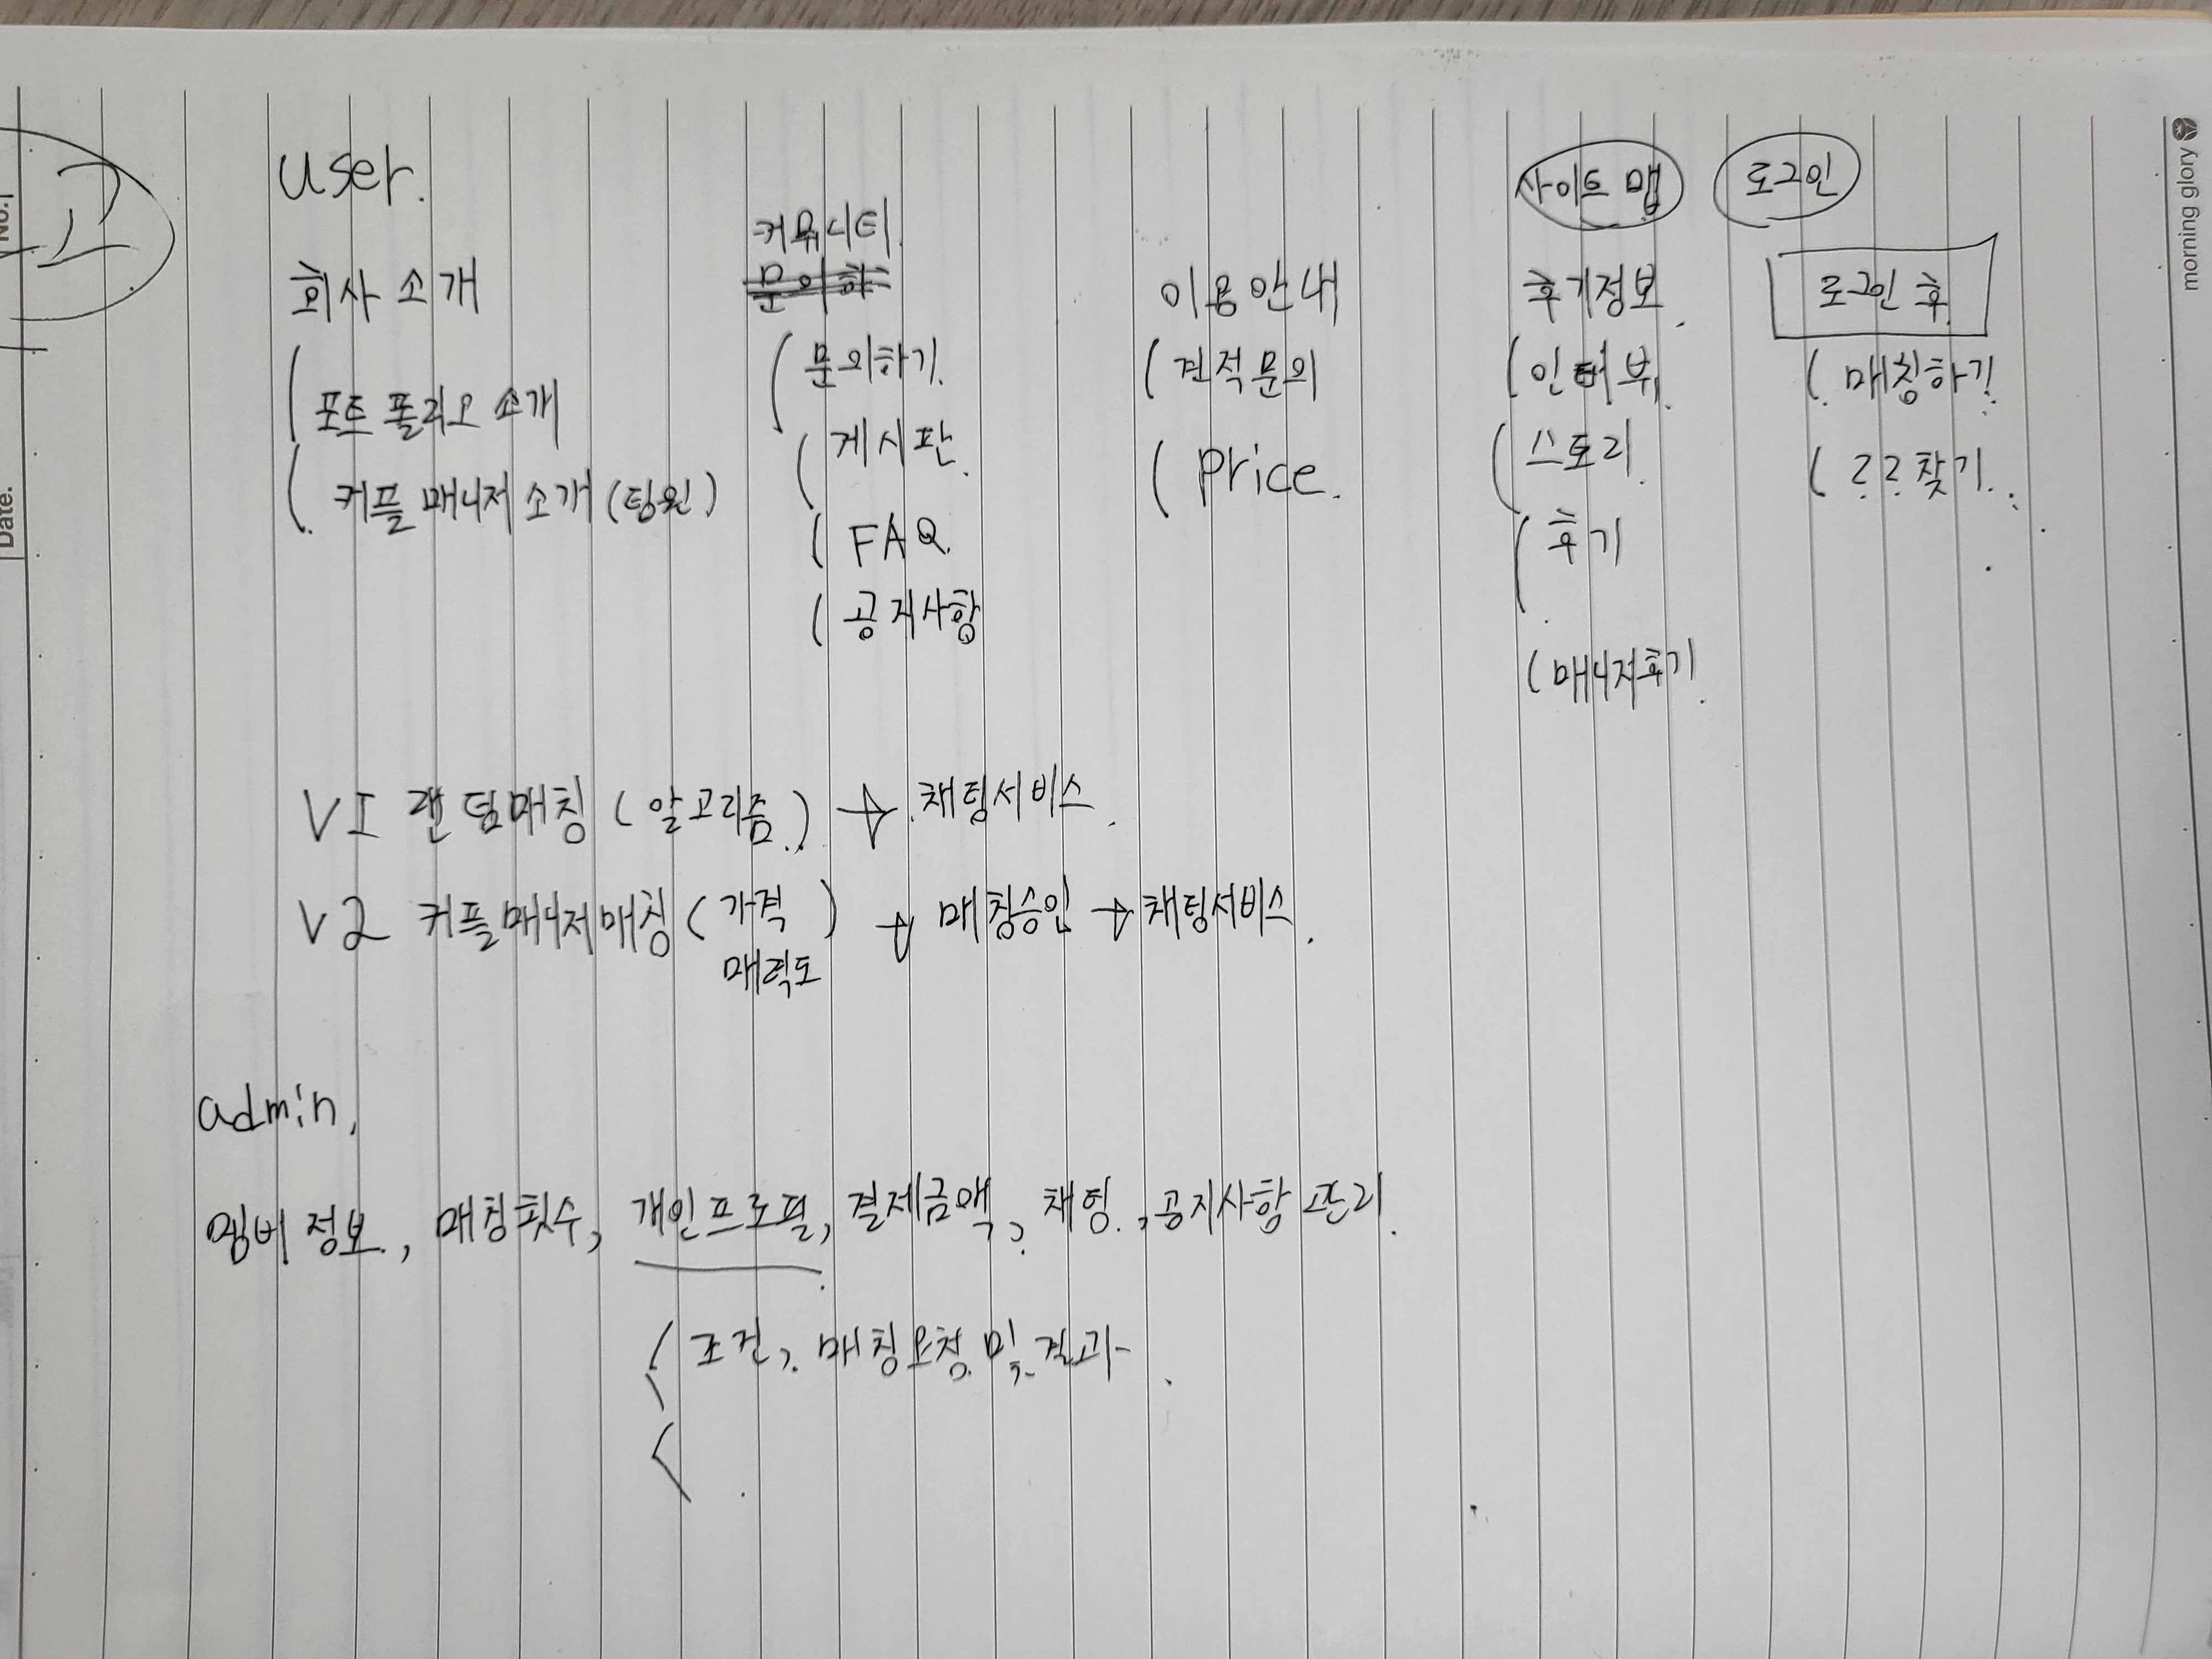 고
No.
Date.
morning glory
user.
사이트 맵
로그인
회사 소개
포트폴리오 소개
커플매니저 소개 (팀원)
커뮤니티
문의하
문의하기.
게시판.
FAQ.
공지사항
이용안내
견적문의
price.
후기정보.
인터뷰.
스토리.
후기
매니저후기.
로그인 후
매칭하기.
??찾기..
V1 랜덤매칭 (알고리즘.) → 채팅서비스.
V2 커플매니저매칭 (가격 매력도) → 매칭승인 → 채팅서비스.
admin.
멤버 정보., 매칭횟수, 개인프로필, 결제금액, 채팅., 공지사항 관리.
조건, 매칭요청 및 결과.